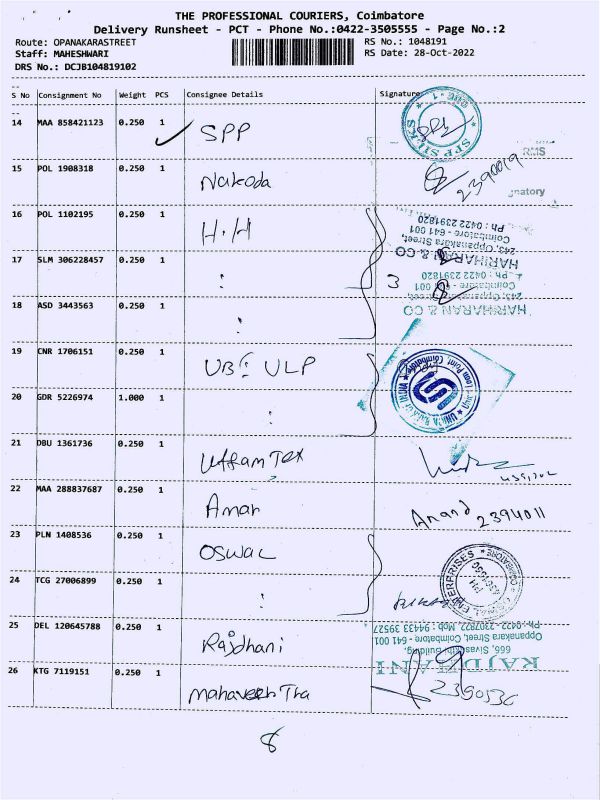 THE PROFESSIONAL COURIERS, Coimbatore
Delivery Runsheet - PCT - Phone No.:0422-3505555 - Page No.:2
Route: OPANAKARASTREET RS No.: 1048191
Staff: MAHESHWARI RS Date: 28-Oct-2022
DRS No.: DCJB104819102
S No Consignment No Weight PCS Consignee Details Signature
14 MAA 858421123 0.250 1 SPP
SPP SILKS
15 POL 1908318 0.250 1 Nakoda 2390019
RMS
natory
16 POL 1102195 0.250 1 H.H
17 SLM 306228457 0.250 1 : 3
18 ASD 3443563 0.250 1 :
HARIHARAN & CO
243, Oppanakara Street,
Coimbatore - 641 001
Ph : 0422 2391820
HARIHARAN & CO
243, Oppanakara Street,
Coimbatore - 641 001
Ph : 0422 2391820
19 CNR 1706151 0.250 1 UBI ULP
20 GDR 5226974 1.000 1 :
21 DBU 1361736 0.250 1 Uttam Tex
22 MAA 288837687 0.250 1 Amar Anand 2394011
23 PLN 1408536 0.250 1 OSWAL
24 TCG 27006899 0.250 1 :
ENTERPRISES
COIMBATORE
25 DEL 120645788 0.250 1 Rajdhani
RAJDHANI
666, Sivasakthi Building,
Oppanakara Street, Coimbatore - 641 001
Ph : 0422 - 2307877, Mob : 94433 39527
26 KTG 7119151 0.250 1 2390536
8